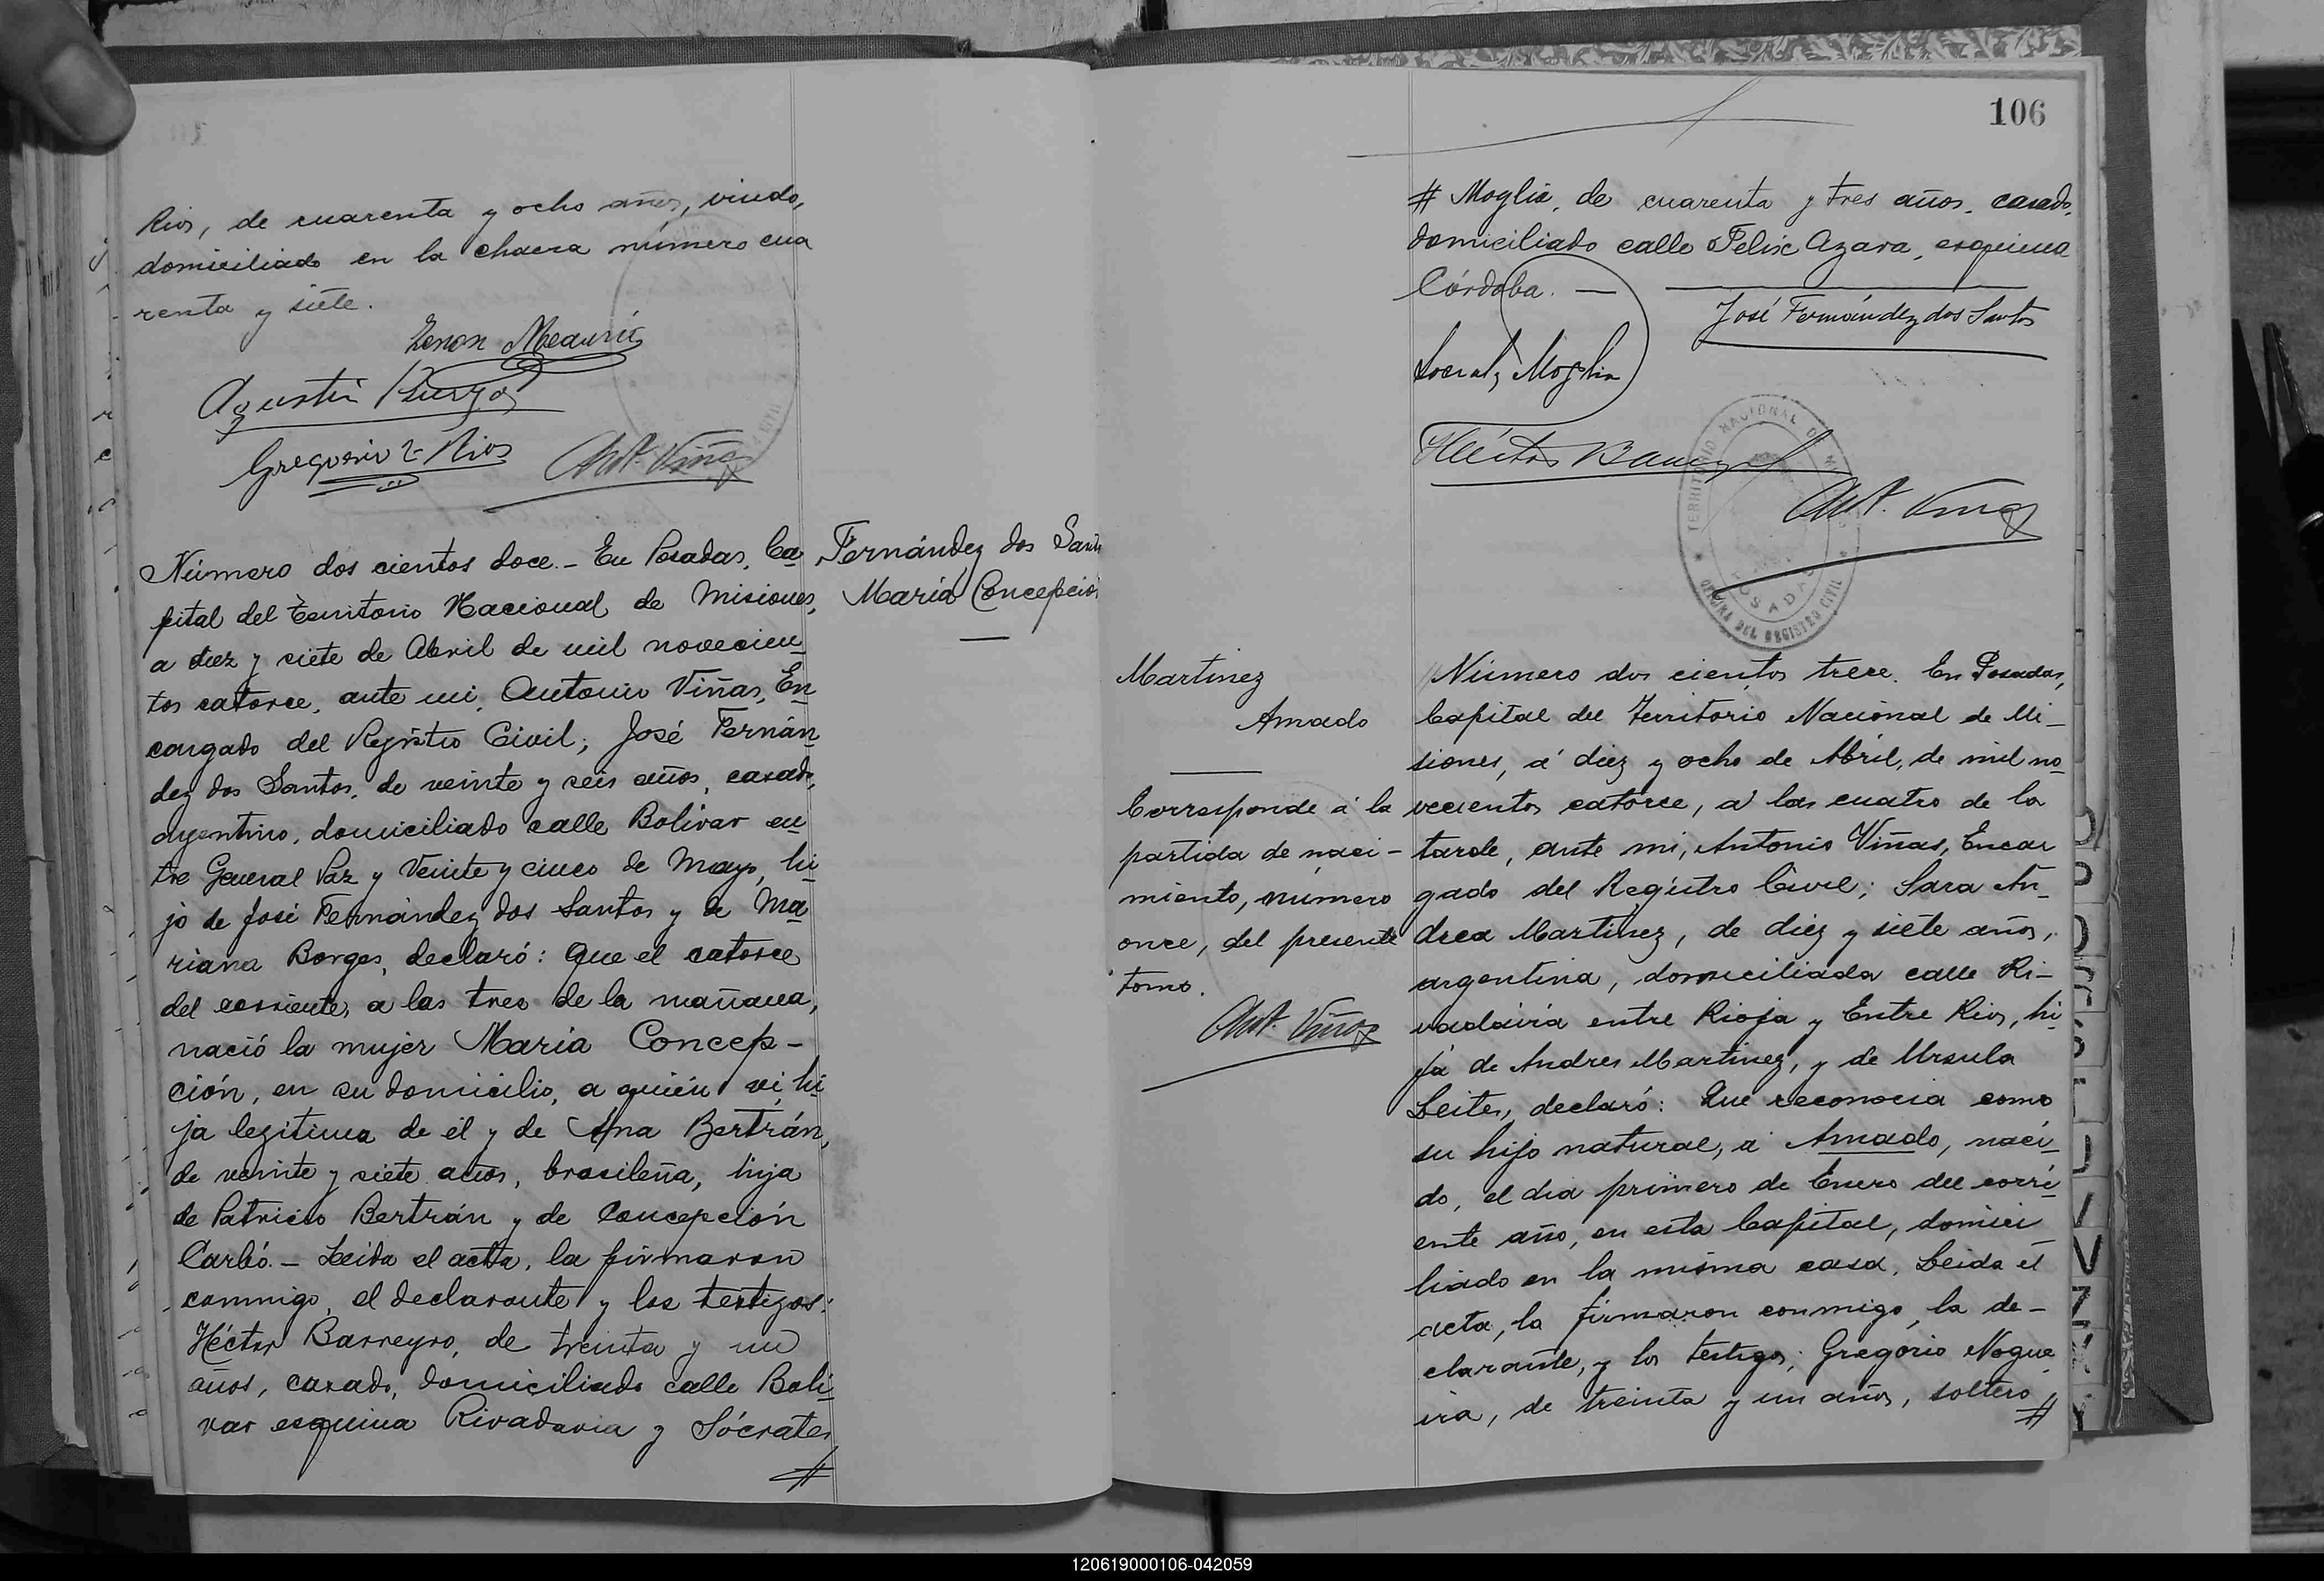 Rios, de cuarenta y ocho años, viudo,
domiciliado en la chacra número cua
renta y siete.
Zenon Meaurio
Agustín Burgos
Gregorio L. Rios
Ant. Viñas
Número dos cientos doce.- En Posadas, Ca
pital del Territorio Nacional de Misiones,
a diez y siete de Abril de mil novecien
tos catorce, ante mi, Antonio Viñas, En
cargado del Registro Civil; José Fernán
dez dos Santos, de veinte y seis años, casado,
argentino, domiciliado calle Bolivar en
tre General Paz y Veinte y cinco de Mayo, hi
jo de José Fernández dos Santos y de Ma
riana Borges, declaró: que el catorce
del corriente, a las tres de la mañana,
nació la mujer María Concep-
ción, en su domicilio, a quien vi, hi
ja legitima de él y de Ana Bertrán,
de veinte y siete años, brasileña, hija
de Patricio Bertrán y de Concepción
Carbó.- Leida el acta, la firmaron
conmigo, el declarante y los testigos:
Héctor Barreyro, de treinta y un
años, casado, domiciliado calle Boli
var esquina Rivadavia y Sócrates
#
Fernández dos Sant
María Concepción
106
# Moglia, de cuarenta y tres años, casado,
domiciliado calle Felix Azara, esquina
Córdoba. —
José Fernández dos Santos
Socrates Moglia
Héctor Barreyro
Ant. Viñas
TERRITORIO NACIONAL DE
POSADAS
OFICINA DEL REGISTRO CIVIL
Martinez
Amado
Corresponde á la
partida de naci-
miento, número
once, del presente
tomo.
Ant. Viñas
Número dos cientos trece. En Posadas,
Capital del Territorio Nacional de Mi-
siones, á diez y ocho de Abril, de mil no
vecientos catorce, a las cuatro de la
tarde, ante mi, Antonio Viñas, Encar
gado del Registro Civil; Sara An-
drea Martinez, de diez y siete años,
argentina, domiciliada calle Ri-
vadavia entre Rioja y Entre Rios, hi
ja de Andres Martinez, y de Ursula
Leites, declaró: Que reconocia como
su hijo natural, á Amado, naci
do, el dia primero de Enero del corri
ente año, en esta Capital, domici
liado en la misma casa. Leida el
acta, la firmaron conmigo, la de-
clarante, y los testigos: Gregorio Nogue
ira, de treinta y un años, soltero
#
120619000106-042059